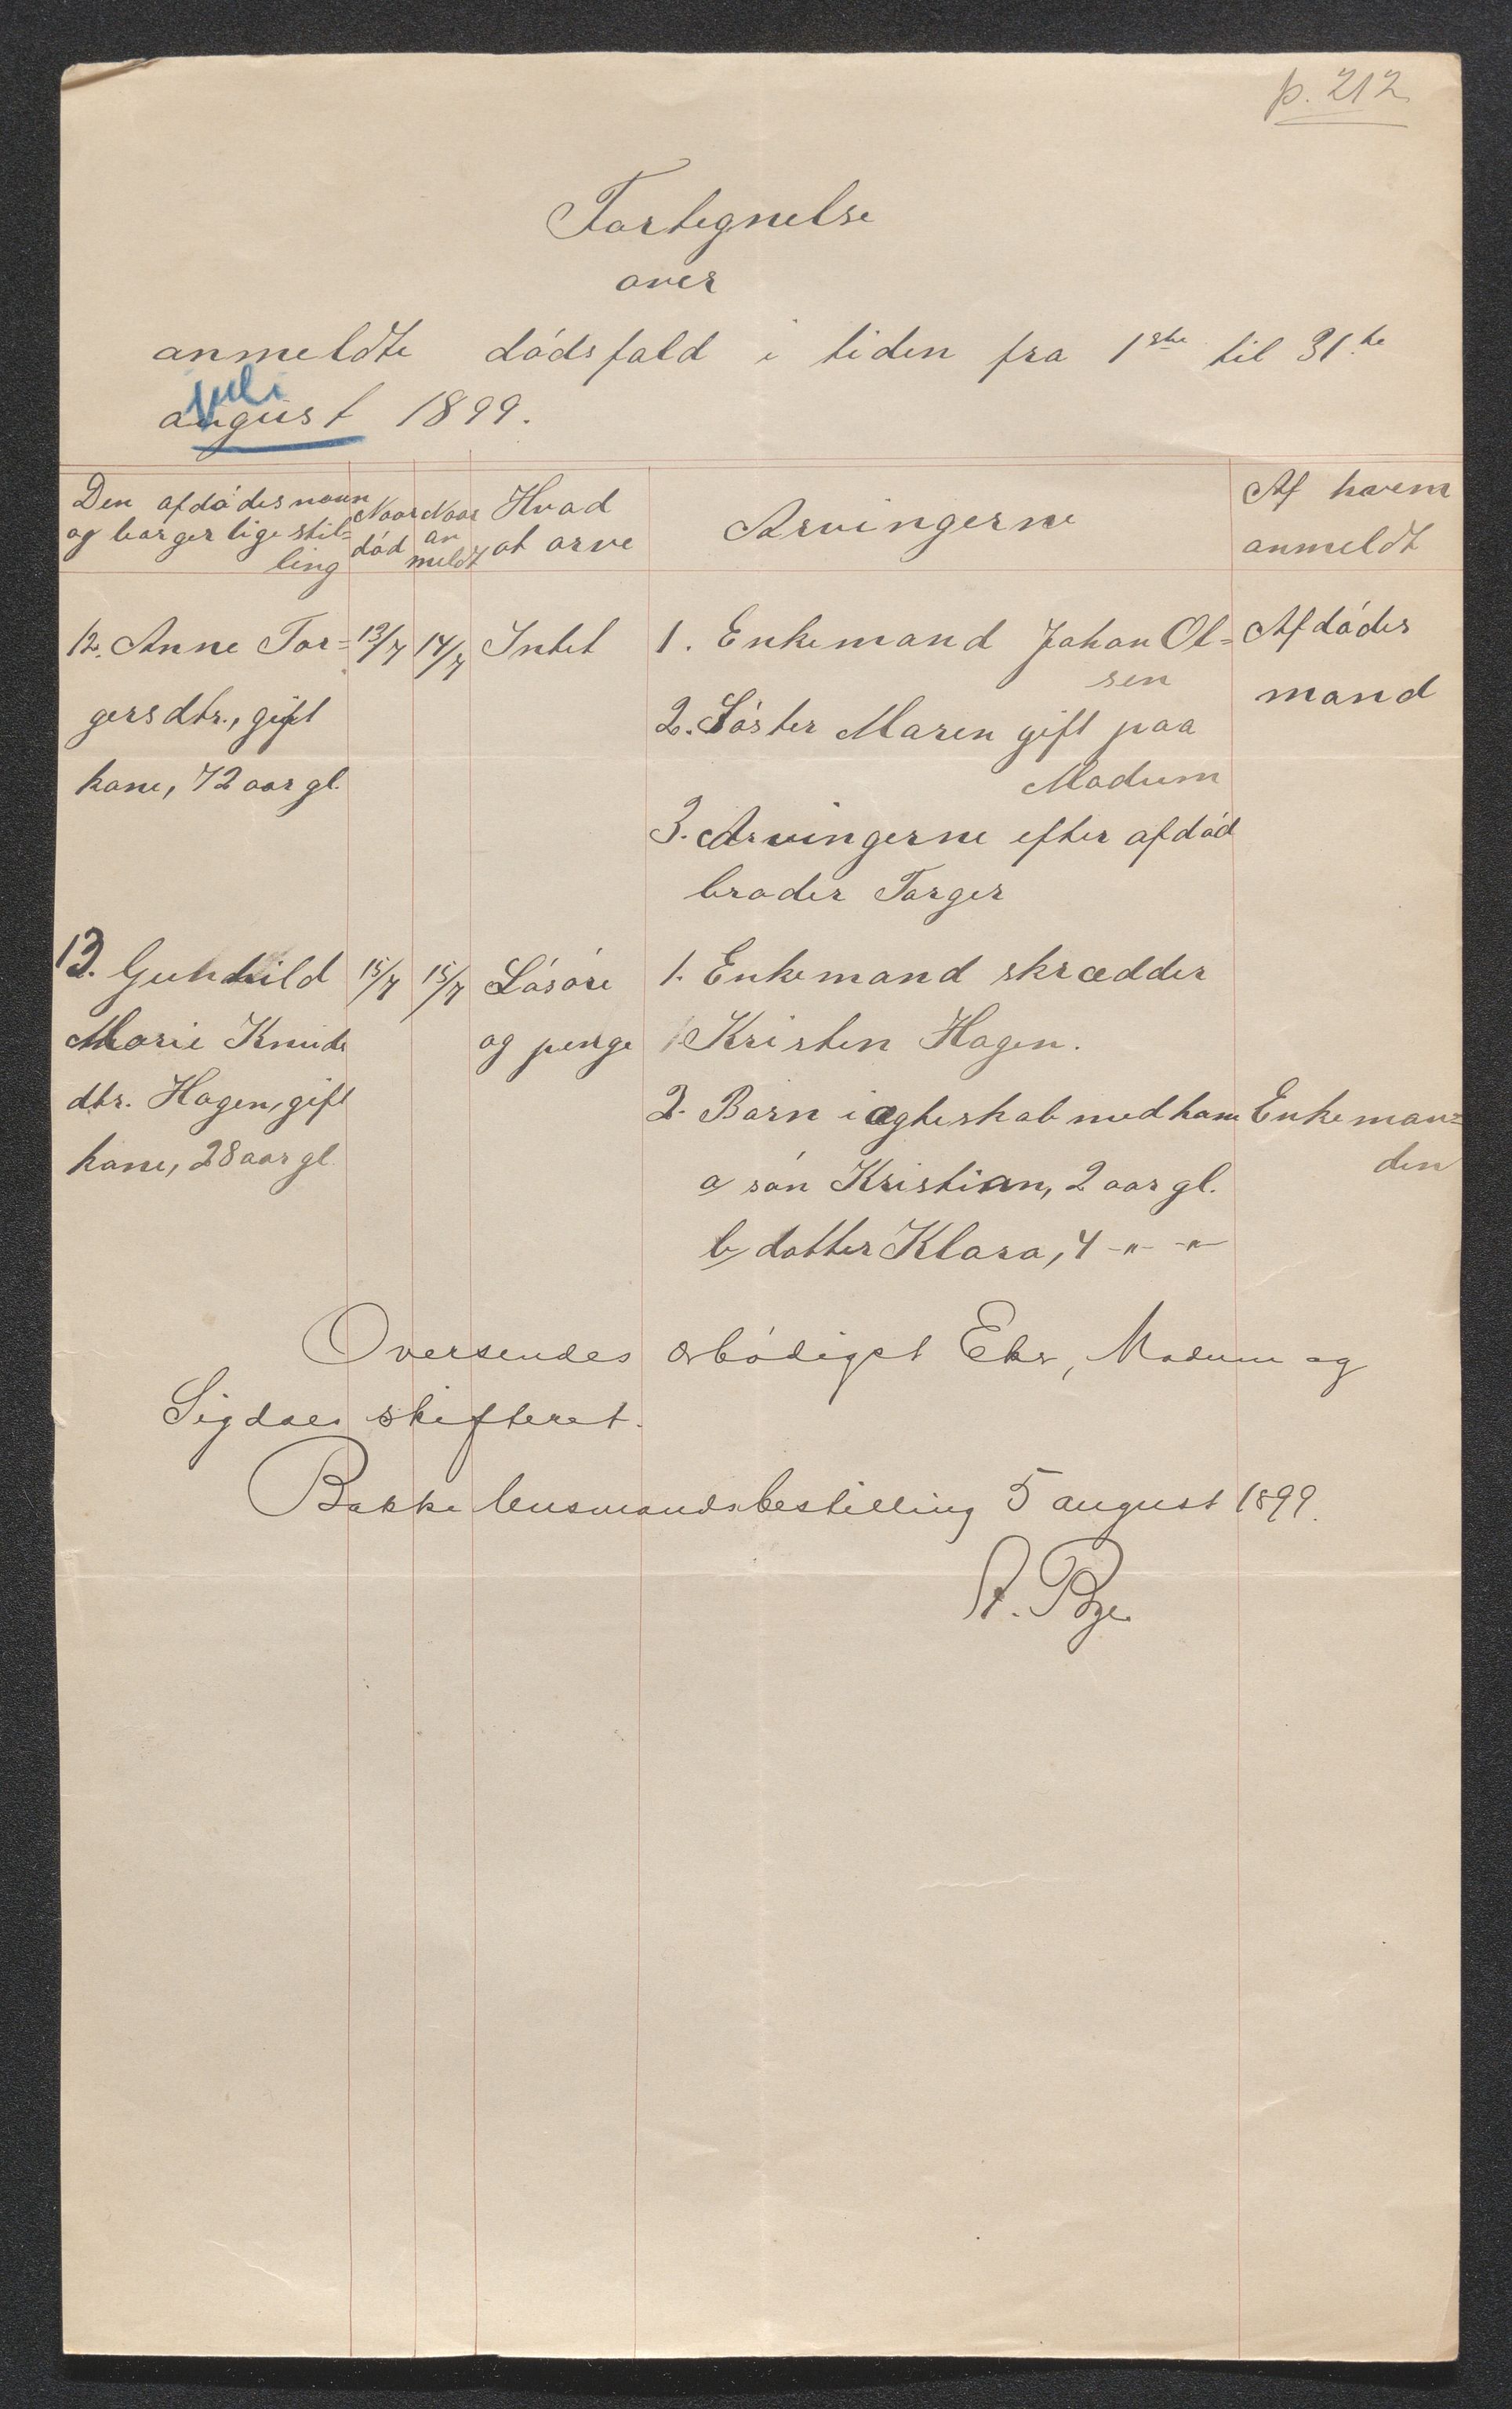 p. 212
Fortegnelse
over
anmeldte dödsfald i tiden fra 1ste til 31te
juli
august 1899.
Den afdödes navn og borgerlige stil=ling
Naar död
Naar an meldt
Hvad at arve
Arvingerne
Af hvem anmeldt
12. Anne Tor= 13/7 14/7 Intet 1. Enkemand Johan Ol= Afdödes
sen
gersdtr., gift 2. Söster Maren gift paa mand
kone, 72 aar gl. Modum
3. Arvingerne efter afdöd
broder Torger
13. Gunhild 15/7 15/7 Lösöre 1. Enkemand skrædder
Marie Knuds og penge Kristen Hagen.
dtr. Hagen, gift 2. Börn i ægteskab med ham Enkeman=
kone, 28 aar gl. den
a/ sön Kristian, 2 aar gl.
b/ datter Klara, 4 -"- -"-
Oversendes ærbödigst Eker, Modum og
Sigdals skifteret.
Bakke lensmandsbestilling 5 august 1899.